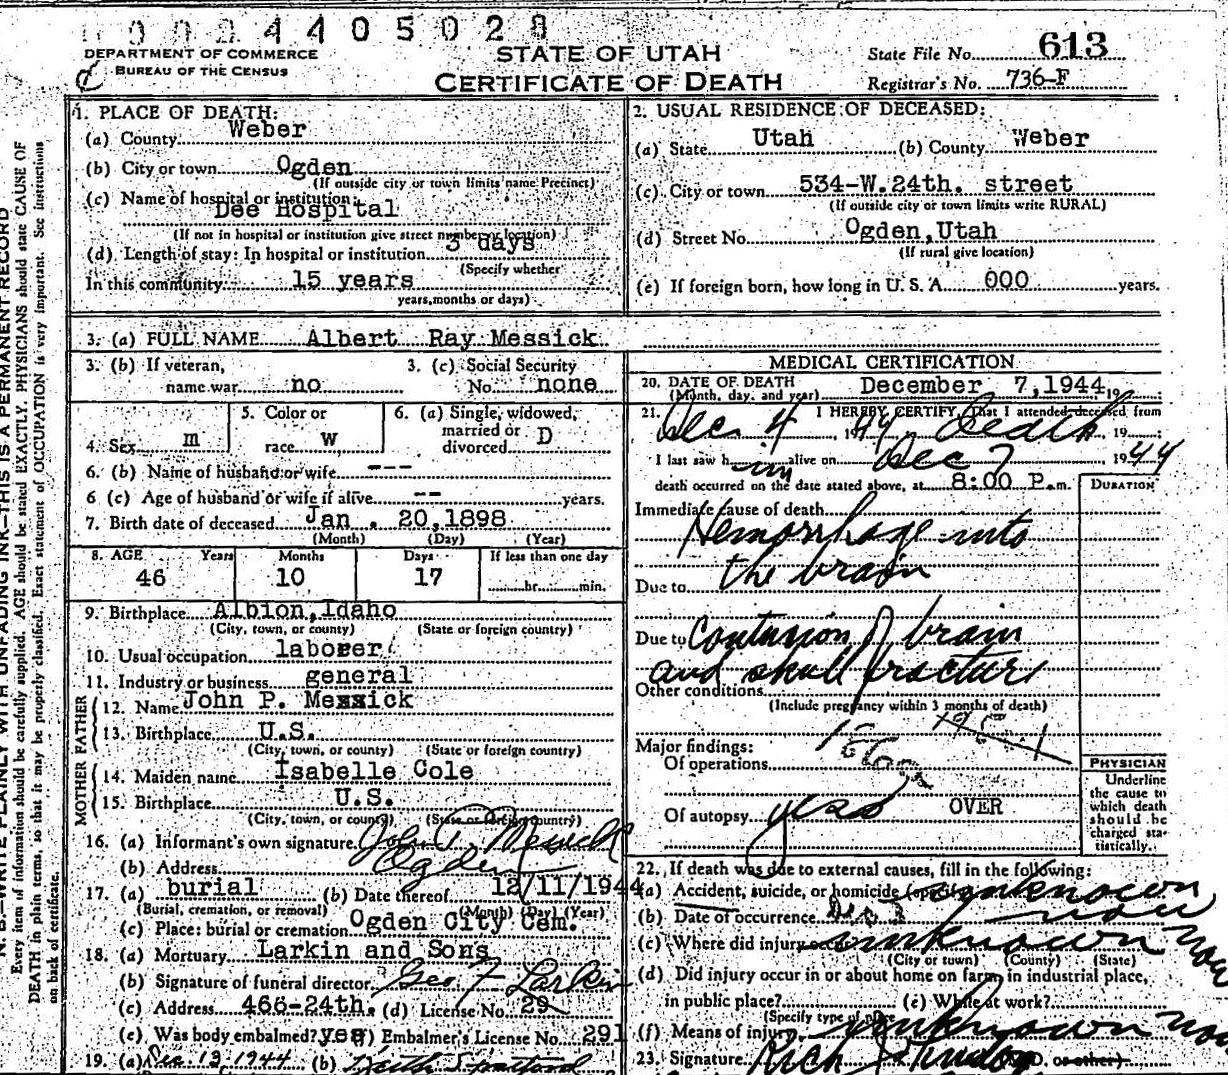 4405028
DEPARTMENT OF COMMERCE
BUREAU OF THE CENSUS
STATE OF UTAH
CERTIFICATE OF DEATH
State File No. 613
Registrar's No. 736-F
N. B.—WRITE PLAINLY WITH UNFADING INK—THIS IS A PERMANENT RECORD
Every item of information should be carefully supplied. AGE should be stated EXACTLY. PHYSICIANS should state CAUSE OF
DEATH in plain terms, so that it may be properly classified. Exact statement of OCCUPATION is very important. See instructions
on back of certificate.
1. PLACE OF DEATH:
(a) County Weber
(b) City or town Ogden
(If outside city or town limits name Precinct)
(c) Name of hospital or institution:
Dee Hospital
(If not in hospital or institution give street number or location)
(d) Length of stay: In hospital or institution 3 days
(Specify whether
In this community 15 years
years, months or days)
2. USUAL RESIDENCE OF DECEASED:
(a) State Utah (b) County Weber
(c) City or town 534-W.24th. street
(If outside city or town limits write RURAL)
(d) Street No. Ogden,Utah
(If rural give location)
(e) If foreign born, how long in U. S. A. 000 years.
3. (a) FULL NAME Albert Ray Messick
3. (b) If veteran,
name war no
3. (c) Social Security
No. none
4. Sex m
5. Color or
race W
6. (a) Single, widowed,
married or
divorced D
6. (b) Name of husband or wife ---
6 (c) Age of husband or wife if alive -- years.
7. Birth date of deceased Jan. 20,1898
(Month) (Day) (Year)
8. AGE Years Months Days If less than one day
46 10 17 hr. min.
9. Birthplace Albion,Idaho
(City, town, or county) (State or foreign country)
10. Usual occupation laborer
11. Industry or business general
FATHER
12. Name John P. Messick
13. Birthplace U.S.
(City, town, or county) (State or foreign country)
MOTHER
14. Maiden name Isabelle Cole
15. Birthplace U.S.
(City, town, or county) (State or foreign country)
16. (a) Informant's own signature John P. Messick
(b) Address Ogden
17. (a) burial (b) Date thereof 12/11/1944
(Burial, cremation, or removal) (Month) (Day) (Year)
(c) Place: burial or cremation Ogden City Cem.
18. (a) Mortuary Larkin and Sons
(b) Signature of funeral director Geo F Larkin
(c) Address 466-24th. (d) License No. 29
(e) Was body embalmed? yes (f) Embalmer's License No. 291
19. (a) Dec. 12, 1944 (b)
MEDICAL CERTIFICATION
20. DATE OF DEATH
(Month, day, and year) December 7,1944, 19
21. I HEREBY CERTIFY, That I attended deceased from
Dec 4, 1944, Death, 19
I last saw him alive on Dec 7 1944
death occurred on the date stated above, at 8:00 P.m.
DURATION
Immediate cause of death
Hemorrhage into
Due to the brain
Due to Contusion of brain
and skull fracture
Other conditions
(Include pregnancy within 3 months of death)
Major findings:
Of operations
Of autopsy yes OVER
PHYSICIAN
Underline
the cause to
which death
should be
charged sta-
tistically.
22. If death was due to external causes, fill in the following:
(a) Accident, suicide, or homicide (specify) unknown
(b) Date of occurrence Dec 3 now
(c) Where did injury occur unknown now
(City or town) (County) (State)
(d) Did injury occur in or about home on farm, in industrial place,
in public place? (e) While at work?
(Specify type of place
(f) Means of injury unknown now
23. Signature Rich D. or other)